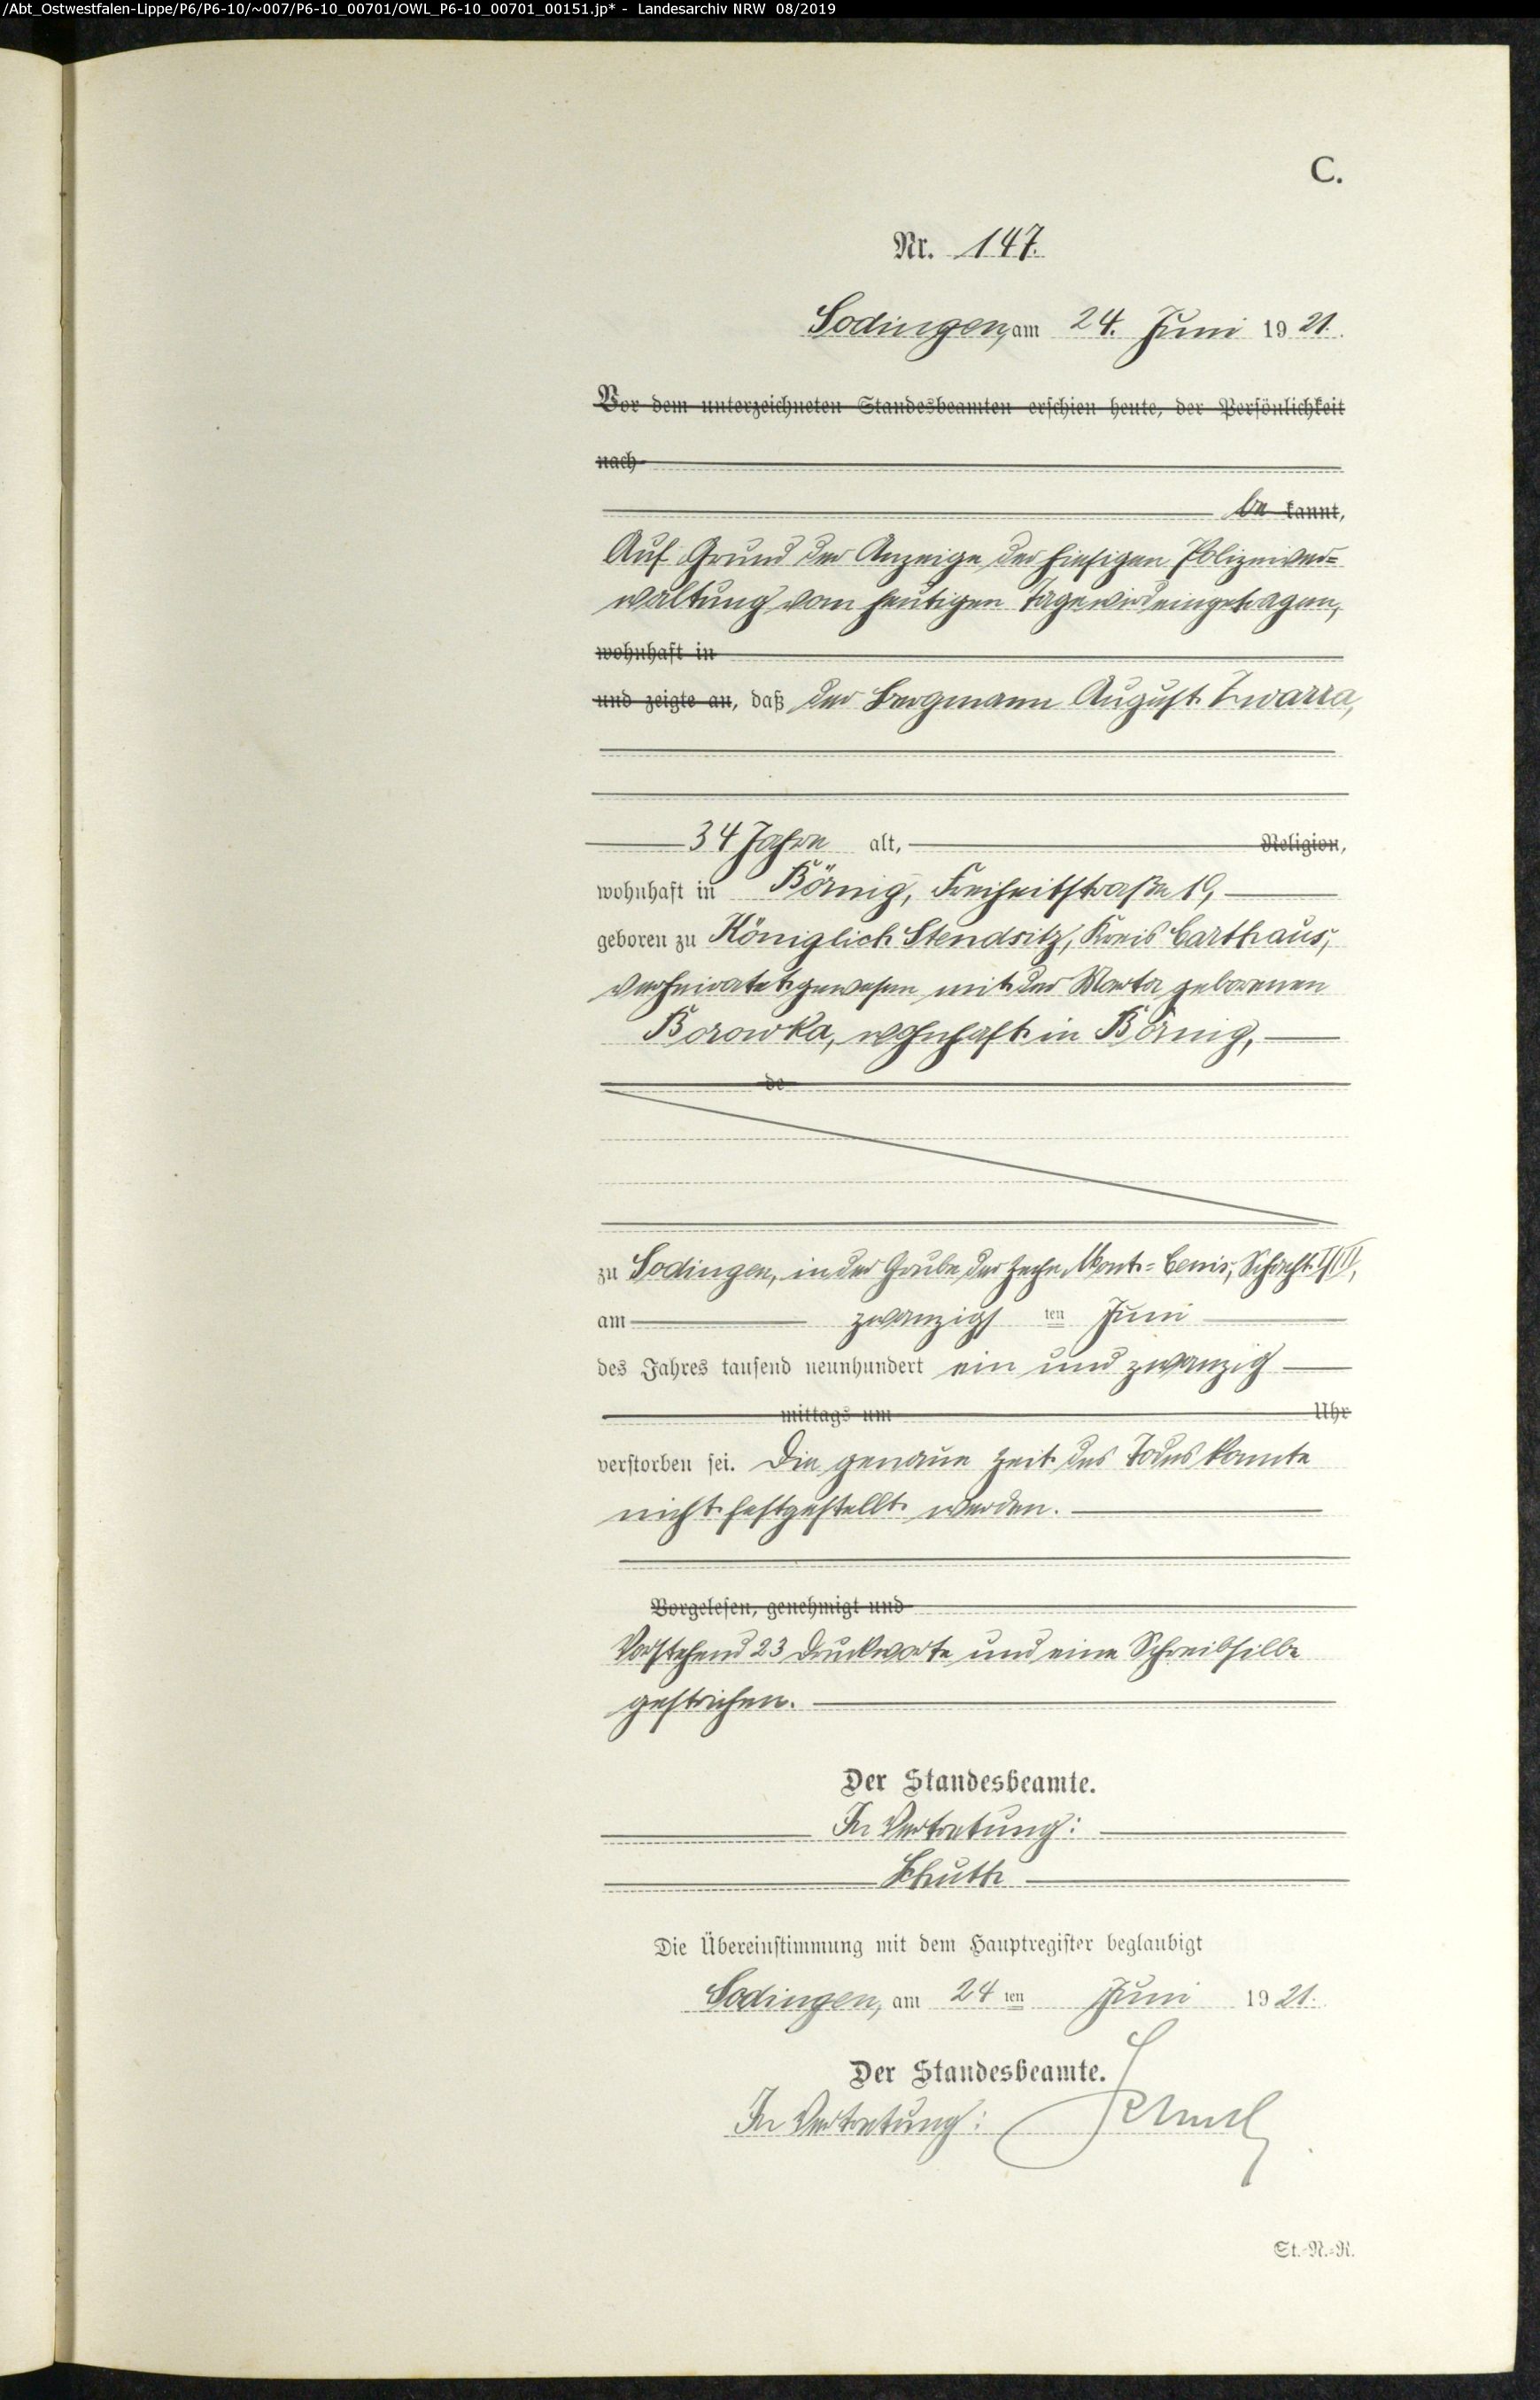 /Abt_Ostwestfalen-Lippe/P6/P6-10/~007/P6-10_00701/OWL_P6-10_00701_00151.jp* - Landesarchiv NRW 08/2019
C.
Nr. 147.
Sodingen, am 24. Juni 1921.
Vor dem unterzeichneten Standesbeamten erschien heute, der Persönlichkeit
nach
be kannt,
Auf Grund der Anzeige der hiesigen Polizeiver=
waltung vom heutigen Tage wird eingetragen,
wohnhaft in
und zeigte an, daß der Bergmann August Zwarra,
34 Jahre alt, Religion,
wohnhaft in Börnig, Freiheitstraße 19,
geboren zu Königlich Stendsitz, Kreis Carthaus,
verheiratet gewesen mit der Marta geborenen
Borowka, wohnhaft in Börnig,
de
zu Sodingen, in der Grube der Zeche Mont=Cenis, Schacht I/III,
am zwanzigsten Juni
des Jahres tausend neunhundert ein und zwanzig
mittags um Uhr
verstorben sei. Die genaue Zeit des Todes konnte
nicht festgestellt werden.
Vorgelesen, genehmigt und
Vorstehend 23 Druckworte und eine Schreibsilbe
gestrichen.
Der Standesbeamte.
In Vertretung:
Die Übereinstimmung mit dem Hauptregister beglaubigt
Sodingen, am 24ten Juni 1921.
Der Standesbeamte.
In Vertretung:
St.-N.-R.